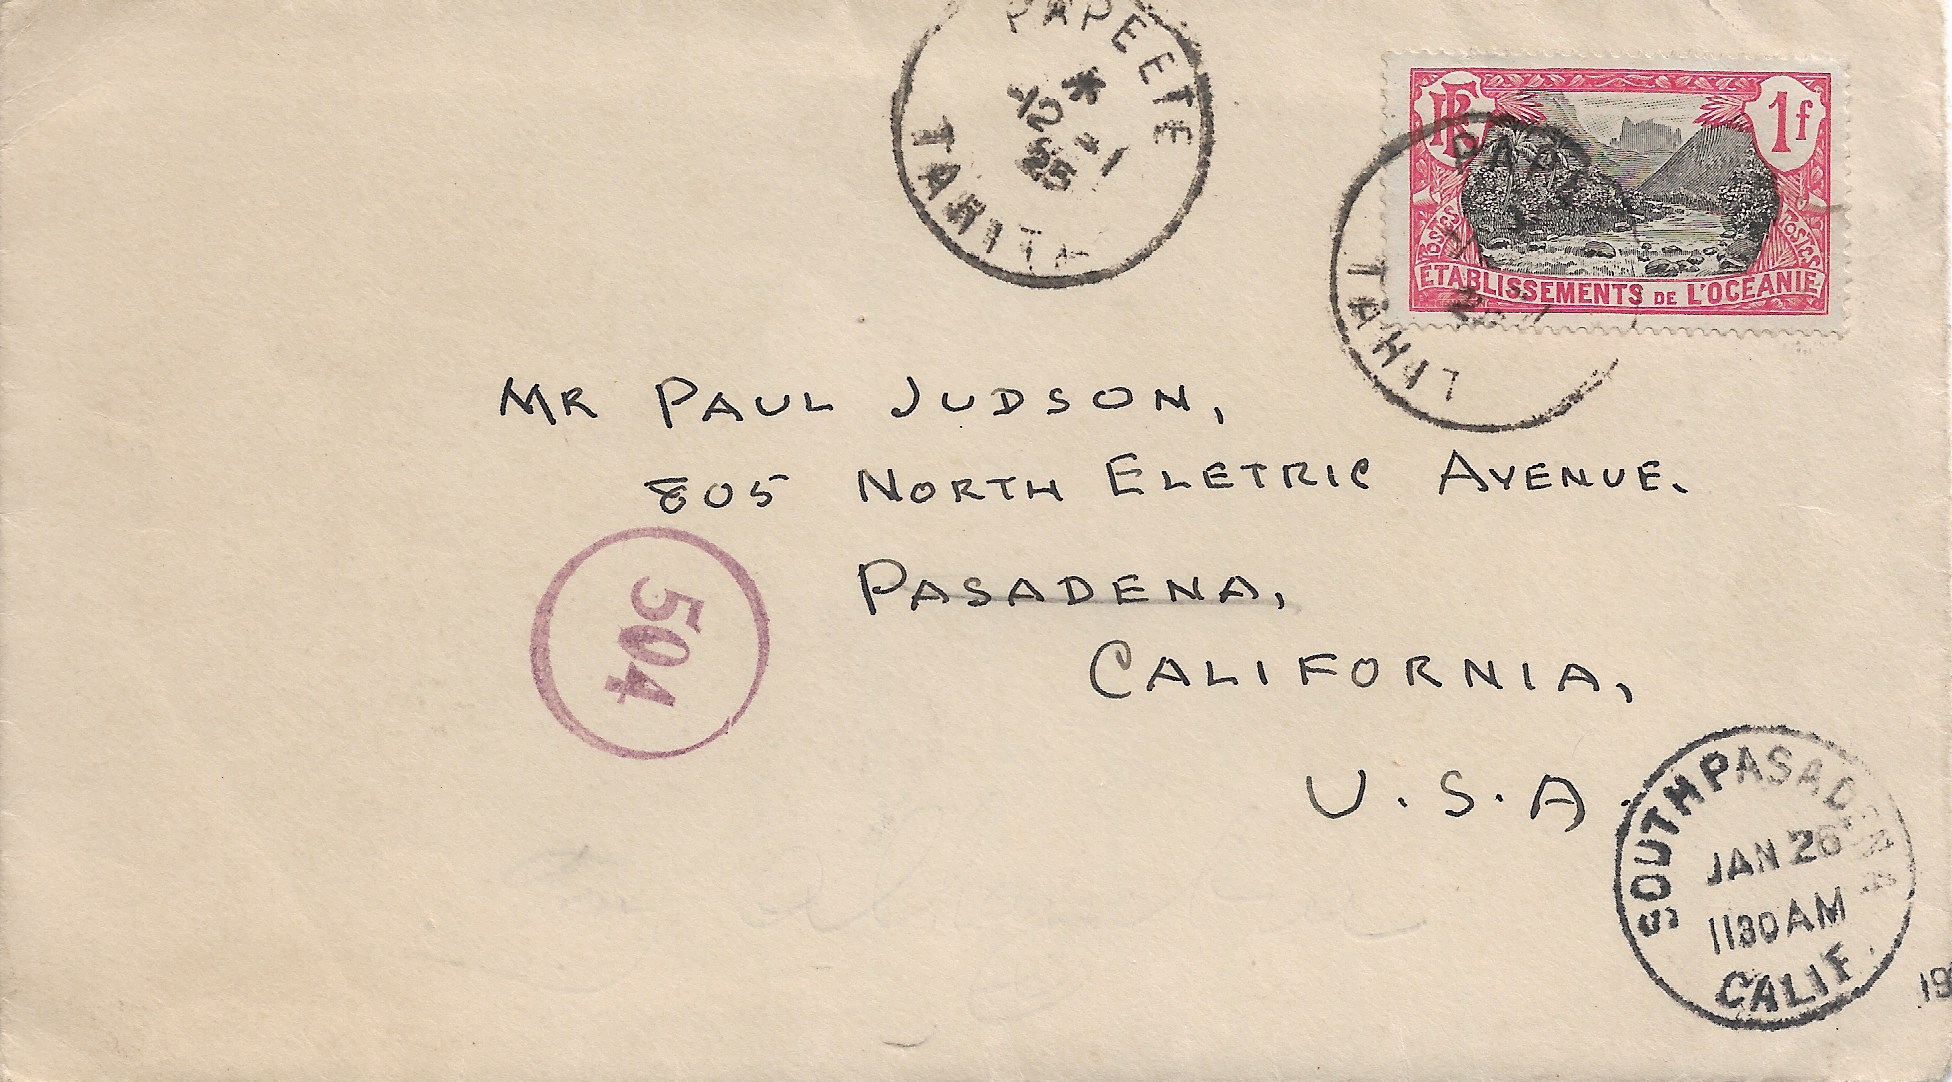 PAPEETE
12 -1
25
TAHITI
RF
1f
ETABLISSEMENTS DE L'OCÉANIE
PAPE
TAHITI
MR PAUL JUDSON,
805 NORTH ELETRIC AVENUE.
PASADENA,
CALIFORNIA,
U.S.A.
504
SOUTH PASADENA
JAN 26
1130 AM
CALIF.
19